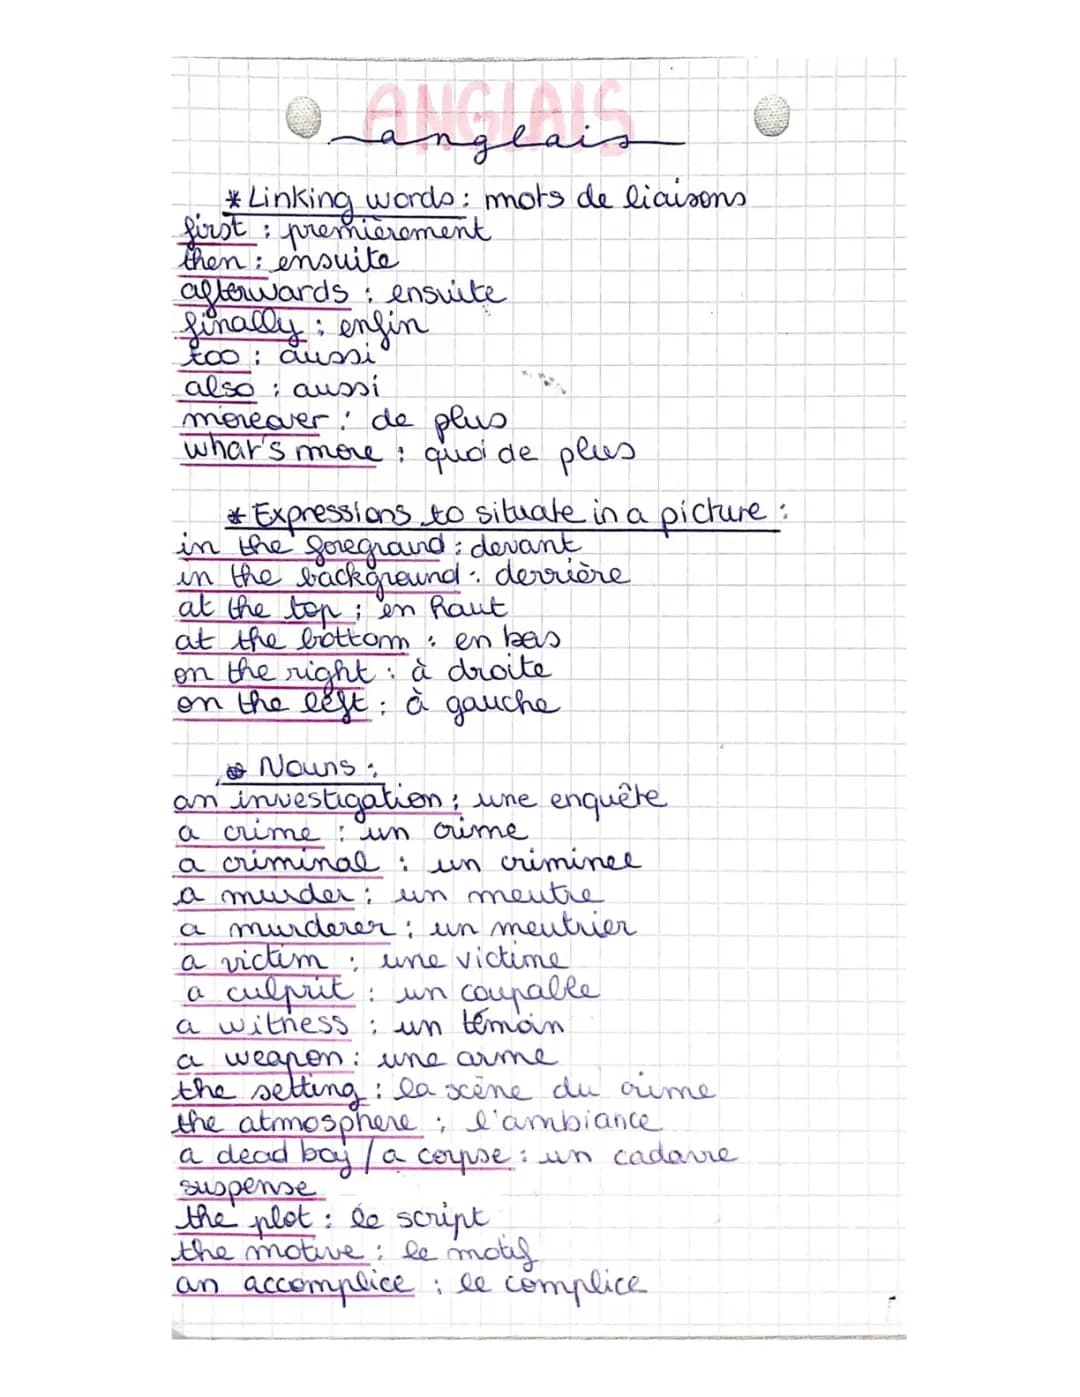 ANGLAIS
anglais
* Linking words : mots de liaisons
first : premièrement
then : ensuite
afterwards : ensuite
finally : enfin
too : aussi
also : aussi
moreaver : de plus
what's more : quoi de plus
* Expressions to situate in a picture :
in the foreground : devant
in the background : derrière
at the top : en haut
at the bottom : en bas
on the right : à droite
on the left : à gauche
* Nouns :
an investigation : une enquête
a crime : un crime
a criminal : un criminel
a murder : un meutre
a murderer : un meutrier
a victim : une victime
a culprit : un coupable
a witness : un témoin
a weapon : une arme
the setting : la scène du crime
the atmosphere : l'ambiance
a dead boy / a corpse : un cadavre
suspense
the plot : le script
the motive : le motif
an accomplice : le complice